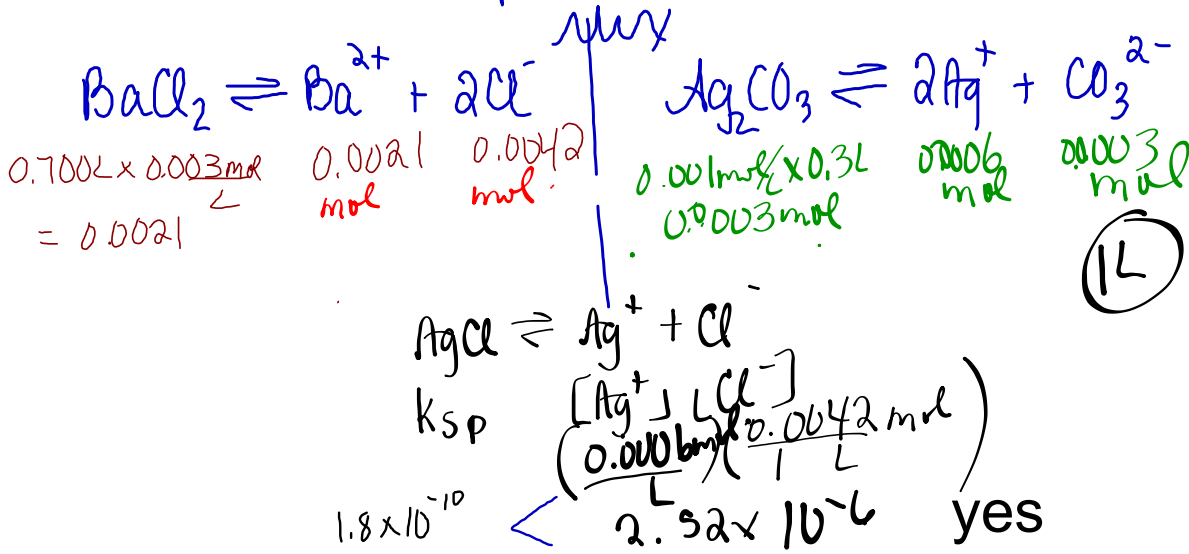 mix
BaCl₂ ⇌ Ba²⁺ + 2Cl⁻
0.700L × 0.003 mol/L
= 0.0021
0.0021 mol
0.0042 mol
Ag₂CO₃ ⇌ 2Ag⁺ + CO₃²⁻
0.001 mol/L × 0.3L
0.0003 mol
0.0006 mol
0.0003 mol
1L
AgCl ⇌ Ag⁺ + Cl⁻
Ksp [Ag⁺][Cl⁻]
(0.0006 mol/L)(0.0042 mol/1 L)
1.8 × 10⁻¹⁰ < 2.52 × 10⁻⁶ yes